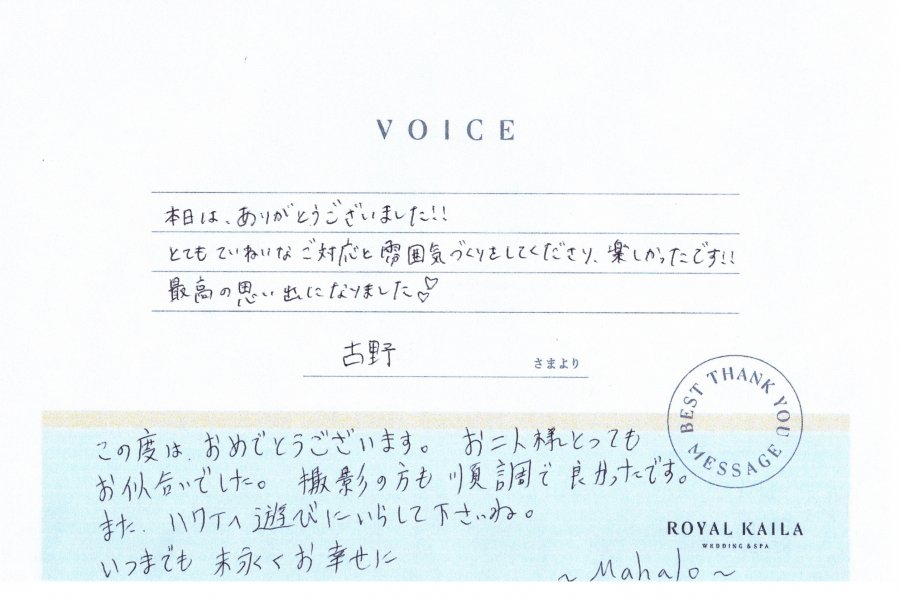 VOICE
本日は、ありがとうございました!!
とてもていねいなご対応と雰囲気づくりをしてくださり、楽しかったです!!
最高の思い出になりました♡♡
古野 さまより
BEST THANK YOU MESSAGE
この度は、おめでとうございます。 お二人様とっても
お似合いでした。 撮影の方も順調で良かったです。
また、ハワイへ遊びにいらして下さいね。
ROYAL KAILA
WEDDING & SPA
いつまでも末永くお幸せに
~Mahalo~